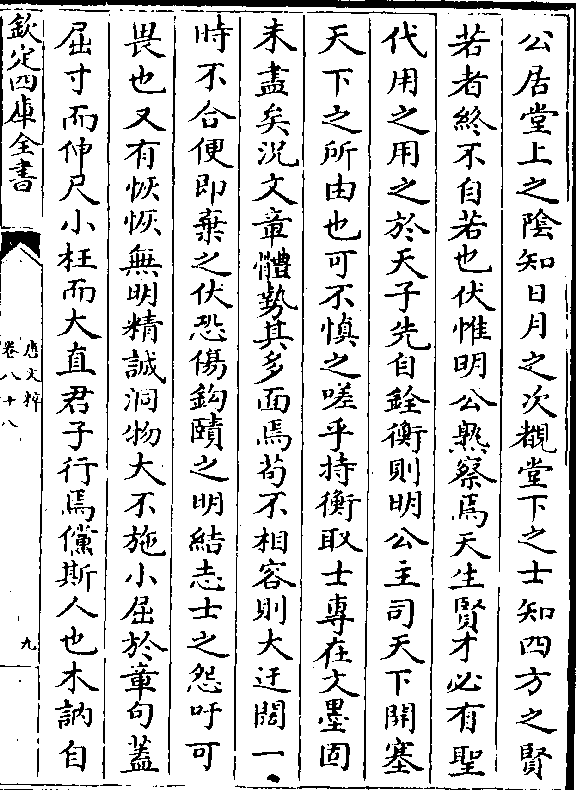 公居堂上之陰知日月之次覩堂下之士知四方之賢
若者終不自若也伏惟明公熟察焉天生賢才必有聖
代用之用之於天子先自銓衡則明公主司天下開塞
天下之所由也可不慎之嗟乎持衡取士專在文墨固
未盡矣況文章體勢其多面焉苟不相容則大迂闊一
時不合便即棄之伏恐傷鈎賾之明結志士之怨吁可
畏也又有恢恢無明精誠洞物大不施小屈於章句蓋
屈寸而伸尺小枉而大直君子行焉儻斯人也木訥自
欽定四庫全書
唐文粹
卷八十八
九